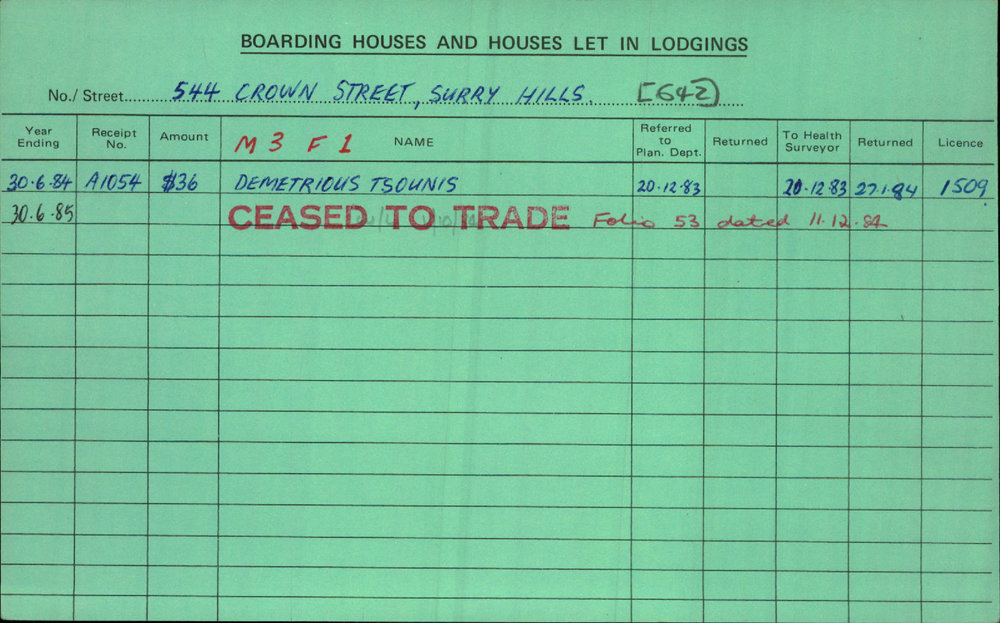 BOARDING HOUSES AND HOUSES LET IN LODGINGS
No./ Street......544 CROWN STREET, SURRY HILLS. [642]
Year Ending Receipt No. Amount M 3 F 1 NAME Referred to Plan. Dept. Returned To Health Surveyor Returned Licence
30.6.84 A1054 $36 DEMETRIOUS TSOUNIS 20.12.83 20.12.83 27.1.84 1509
30.6.85 CEASED TO TRADE Folio 53 dated 11.12.84